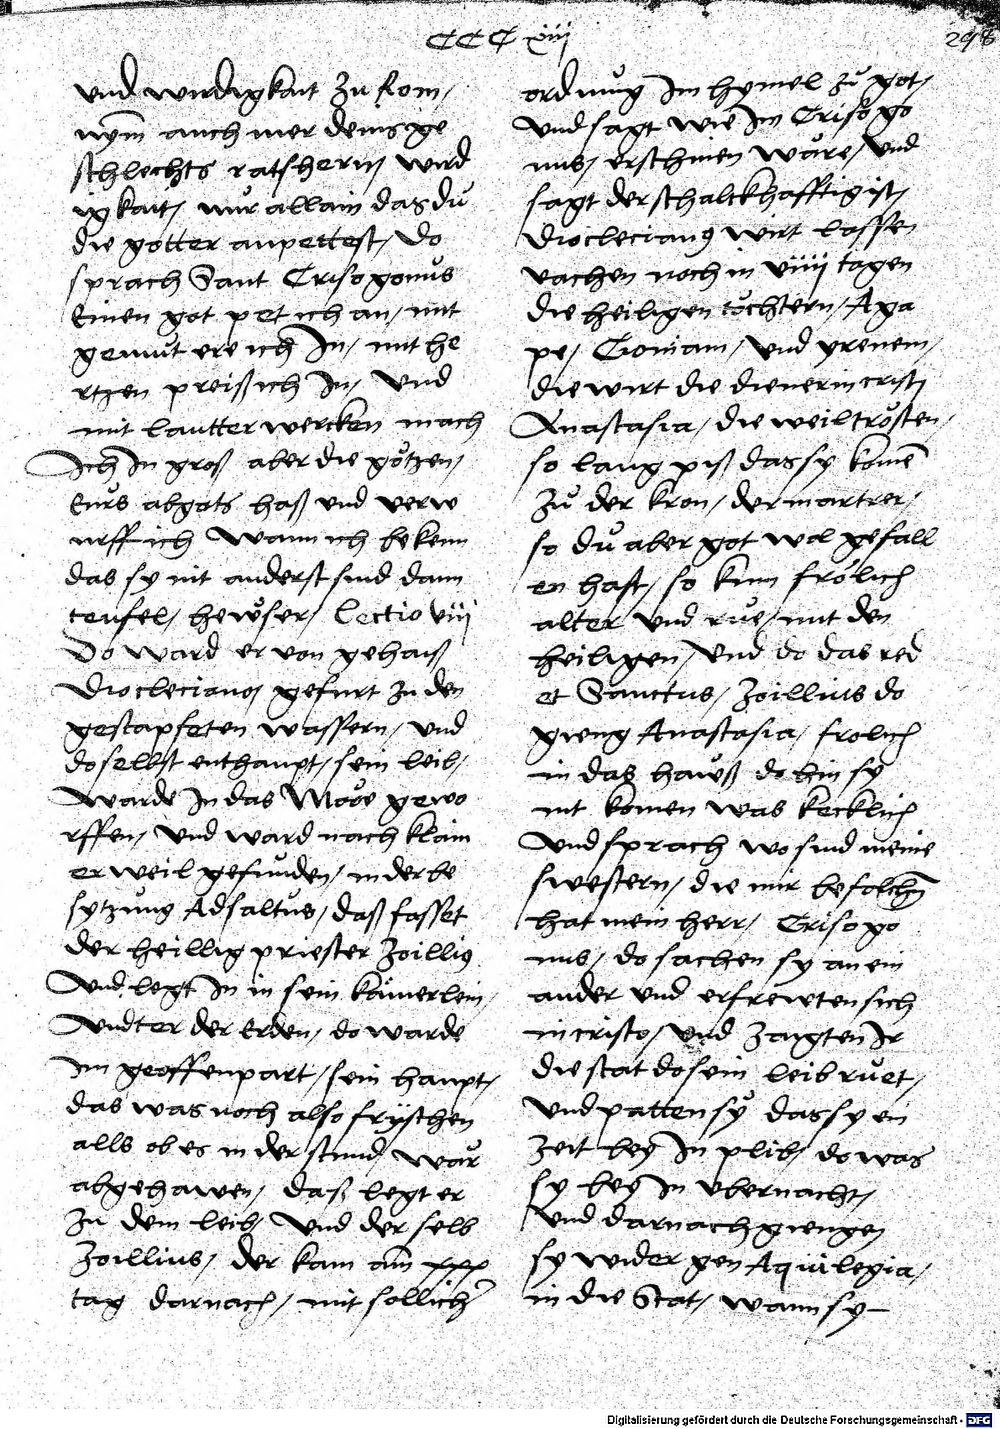 CCC xiiij
298
vnd wirdigkait Zu kom,
nym̃ auch mer deins ge
schlechts ratsherrn, wird
igkait, nur allain das dŭ
die gotter anpettest, Do
sprach Sant Crisogonus
Einen got pet ich an, mit
gemŭt ere ich In, mit he
rtzen preiß ich In, vnd
mit lautter wercken mach
Ich In groß aber die götzen,
Eurs abgots haß vnd verw
urff ich Wann ich bekenn
das sy nit anderst sind dann
teufel, hewser, Lectio viij
Do ward er von gehaiß
Diocleciano, gefurt zu den
gestapfeten wassern, vnd
doselbst enthaupt, sein leib,
Warde In das Möre gewo
rffen, vnd ward nach klain
er weil gefunden, in der be
sytzŭng Adsaltŭs, daß fasset
der heillig priester Zoillius
Vnd legt In in sein kämerlein,
Vndter der Erden, do warde
Im geoffenpart, sein haupt,
das was noch also fryschen
alls ob es in der stund wär
abgehawen, daß legt er
Zu dem leib, Vnd der selb
Zoillius, der kam am̃ xxx
tag darnach, mit sollicher
ordnŭg Im hymel zŭ got,
Vnd sagt wie Im Crisogo
nus, erschinen wäre, Vnd
sagt der schalckhafftig ist,
Dioclecianus wirt lassen
vachen noch in viiij tagen
die heiligen töchtern, Aga
pe, Cioniam, Vnd yrenem,
die wirt die dienerin cristi
Anastasia, die weil trösten,
so lang piß das sy komẽ
Zŭ der kron, der martrer,
so dŭ aber got wol gefall
en hast, so kum frölich
alter vnd rue, mit den
heiligen, Vnd do das red
et Sanctus, Zoillius do
gieng Anastasia, frolich
in das hawß do hin sy
nit komen was kecklich
Vnd sprach wo sind meine
swestern, die mir befolchñ
hat mein herr, Crisogo
nus, do sachen sy an ein
ander vnd erfrewten sich
in cristo, Vnd Zaigten Ir
die stat do sein leib ruet,
Vnd patten sy das sy ein
Zeit bey In plib, do was
sy bey In vbernacht,
Vnd darnach giengen
sy wider gen Aquilegia,
in die Stat, wann sy
Digitalisierung gefördert durch die Deutsche Forschungsgemeinschaft - DFG